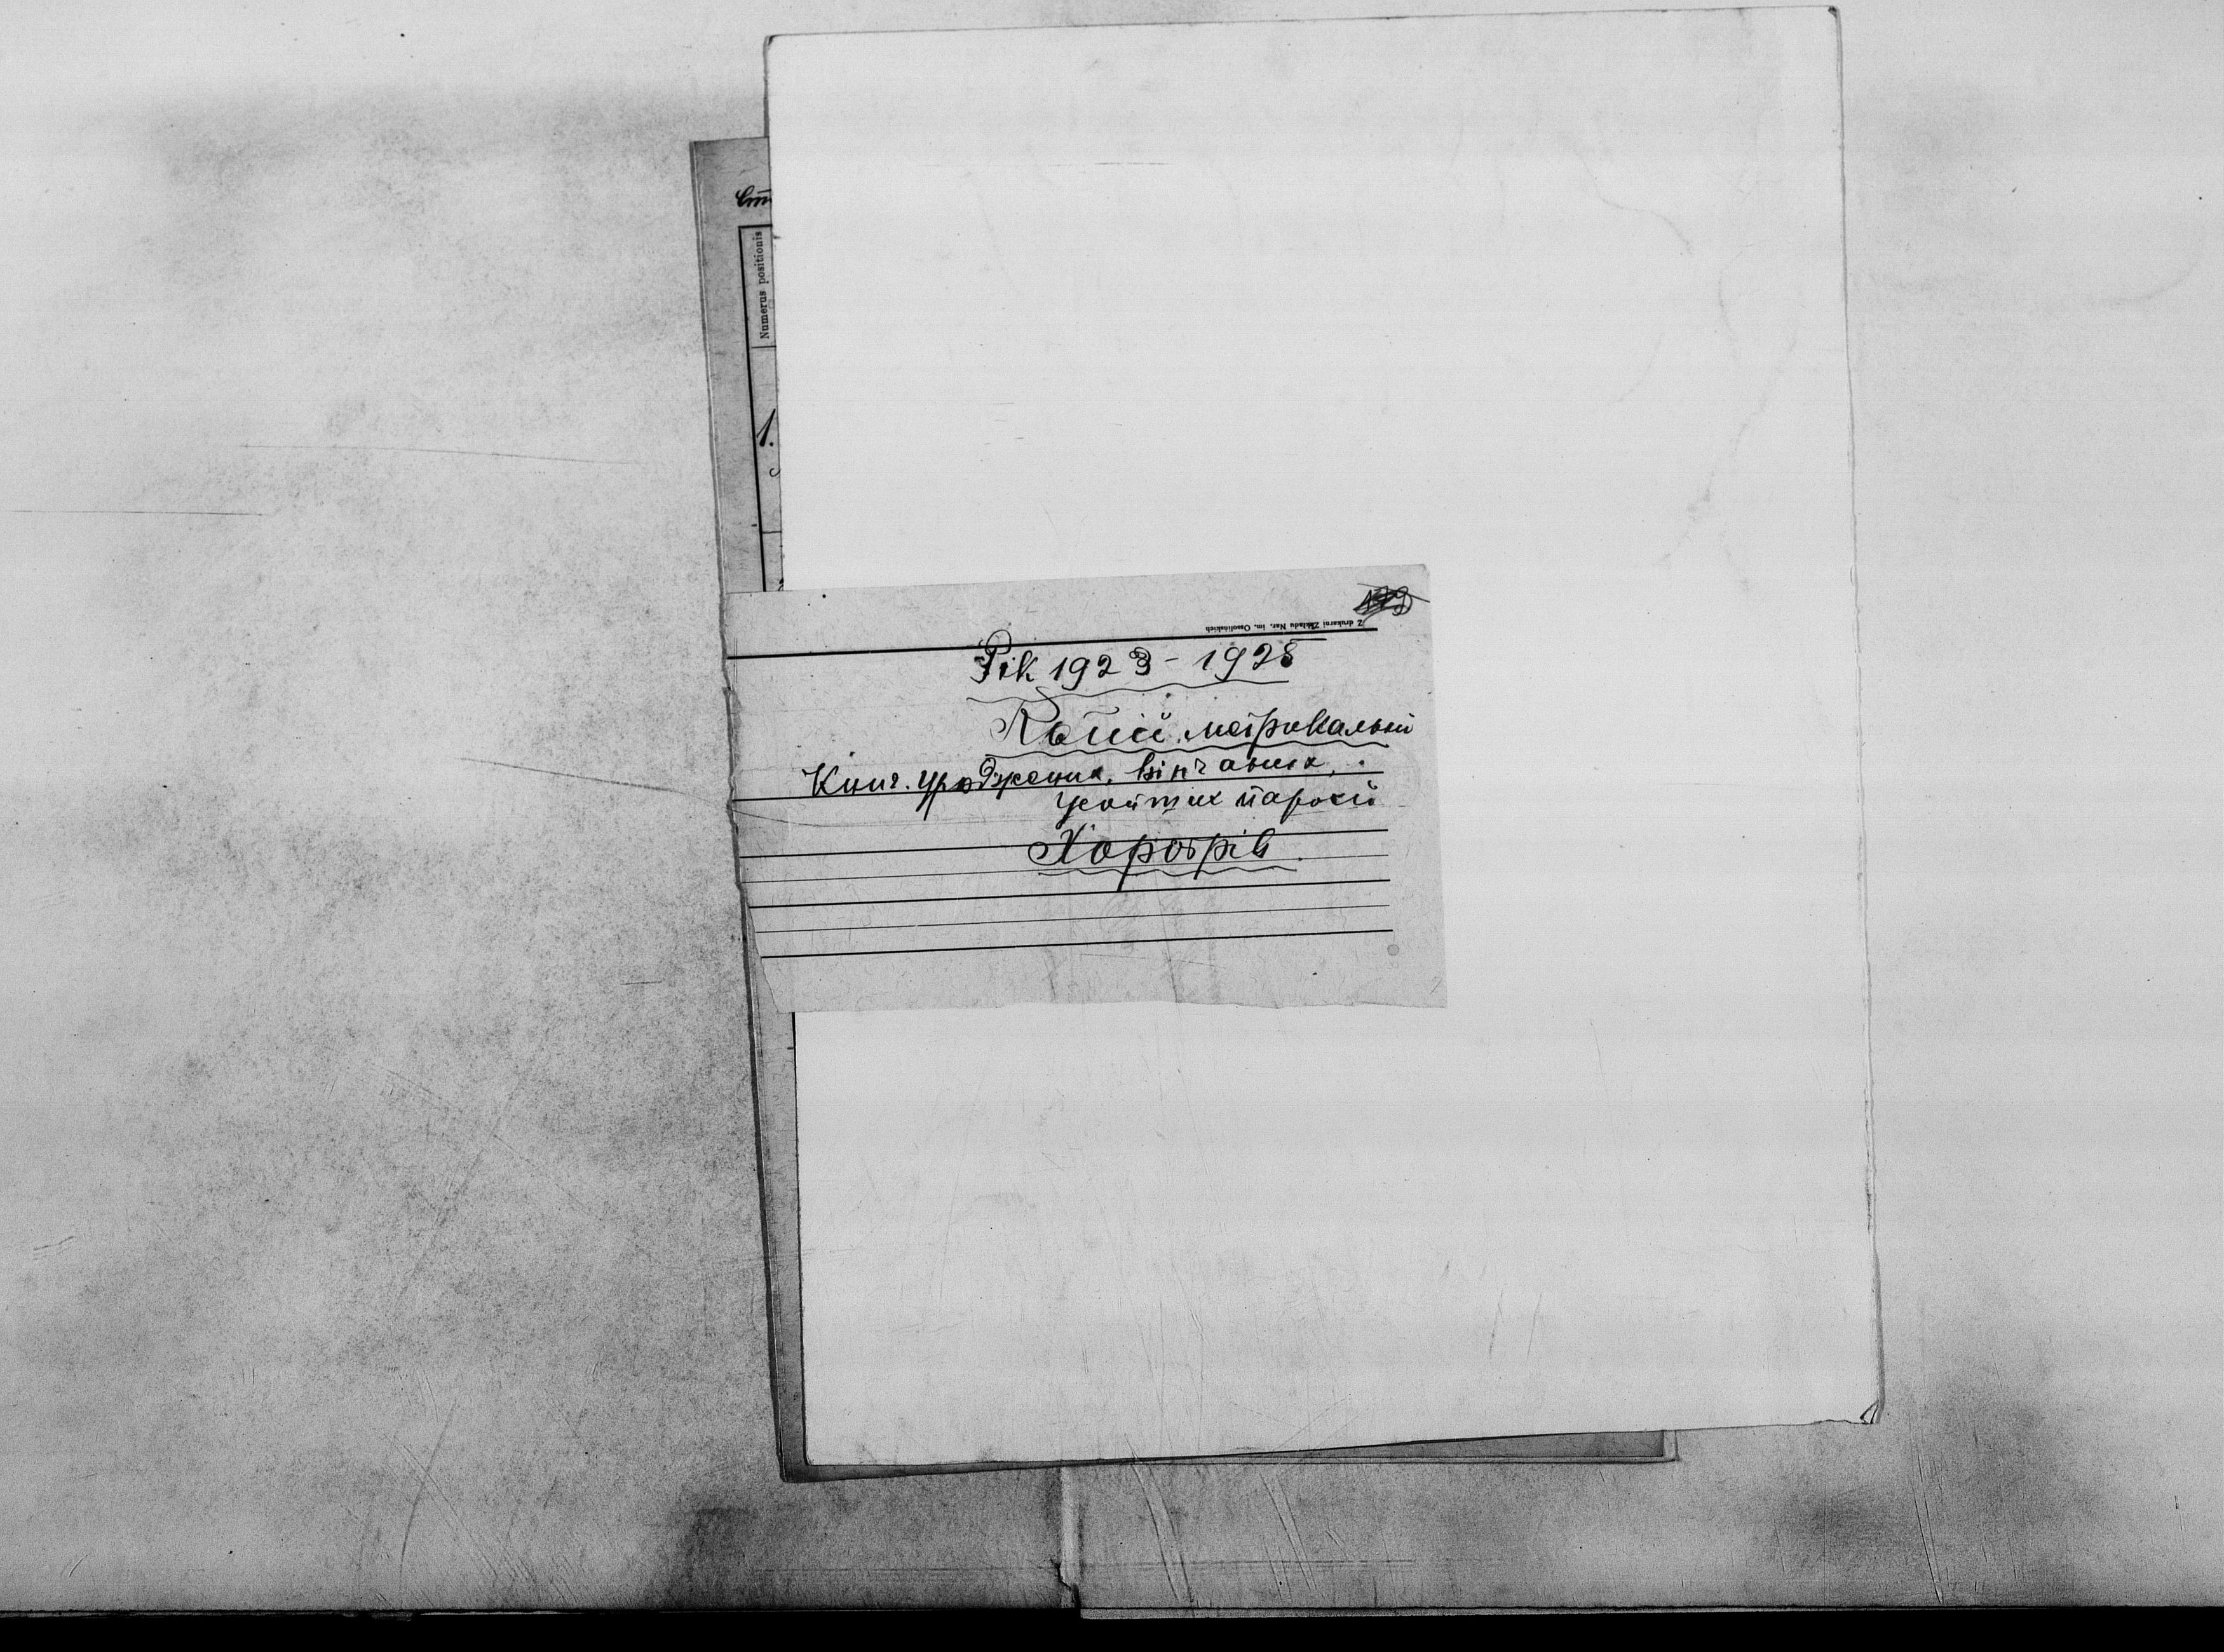 Numerus positionis
1.
Z drukarni Zakładu Nar. im. Ossolińskich
Рік 1923 - 1928
Копії метрикальні
Книг. уроджених, вінчаних,
усопших парохії
Хоробрів.